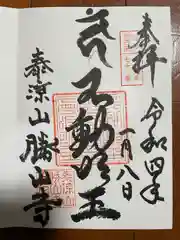 奉拝
令和四年
一月八日
不動明王
泰涼山
勝山寺